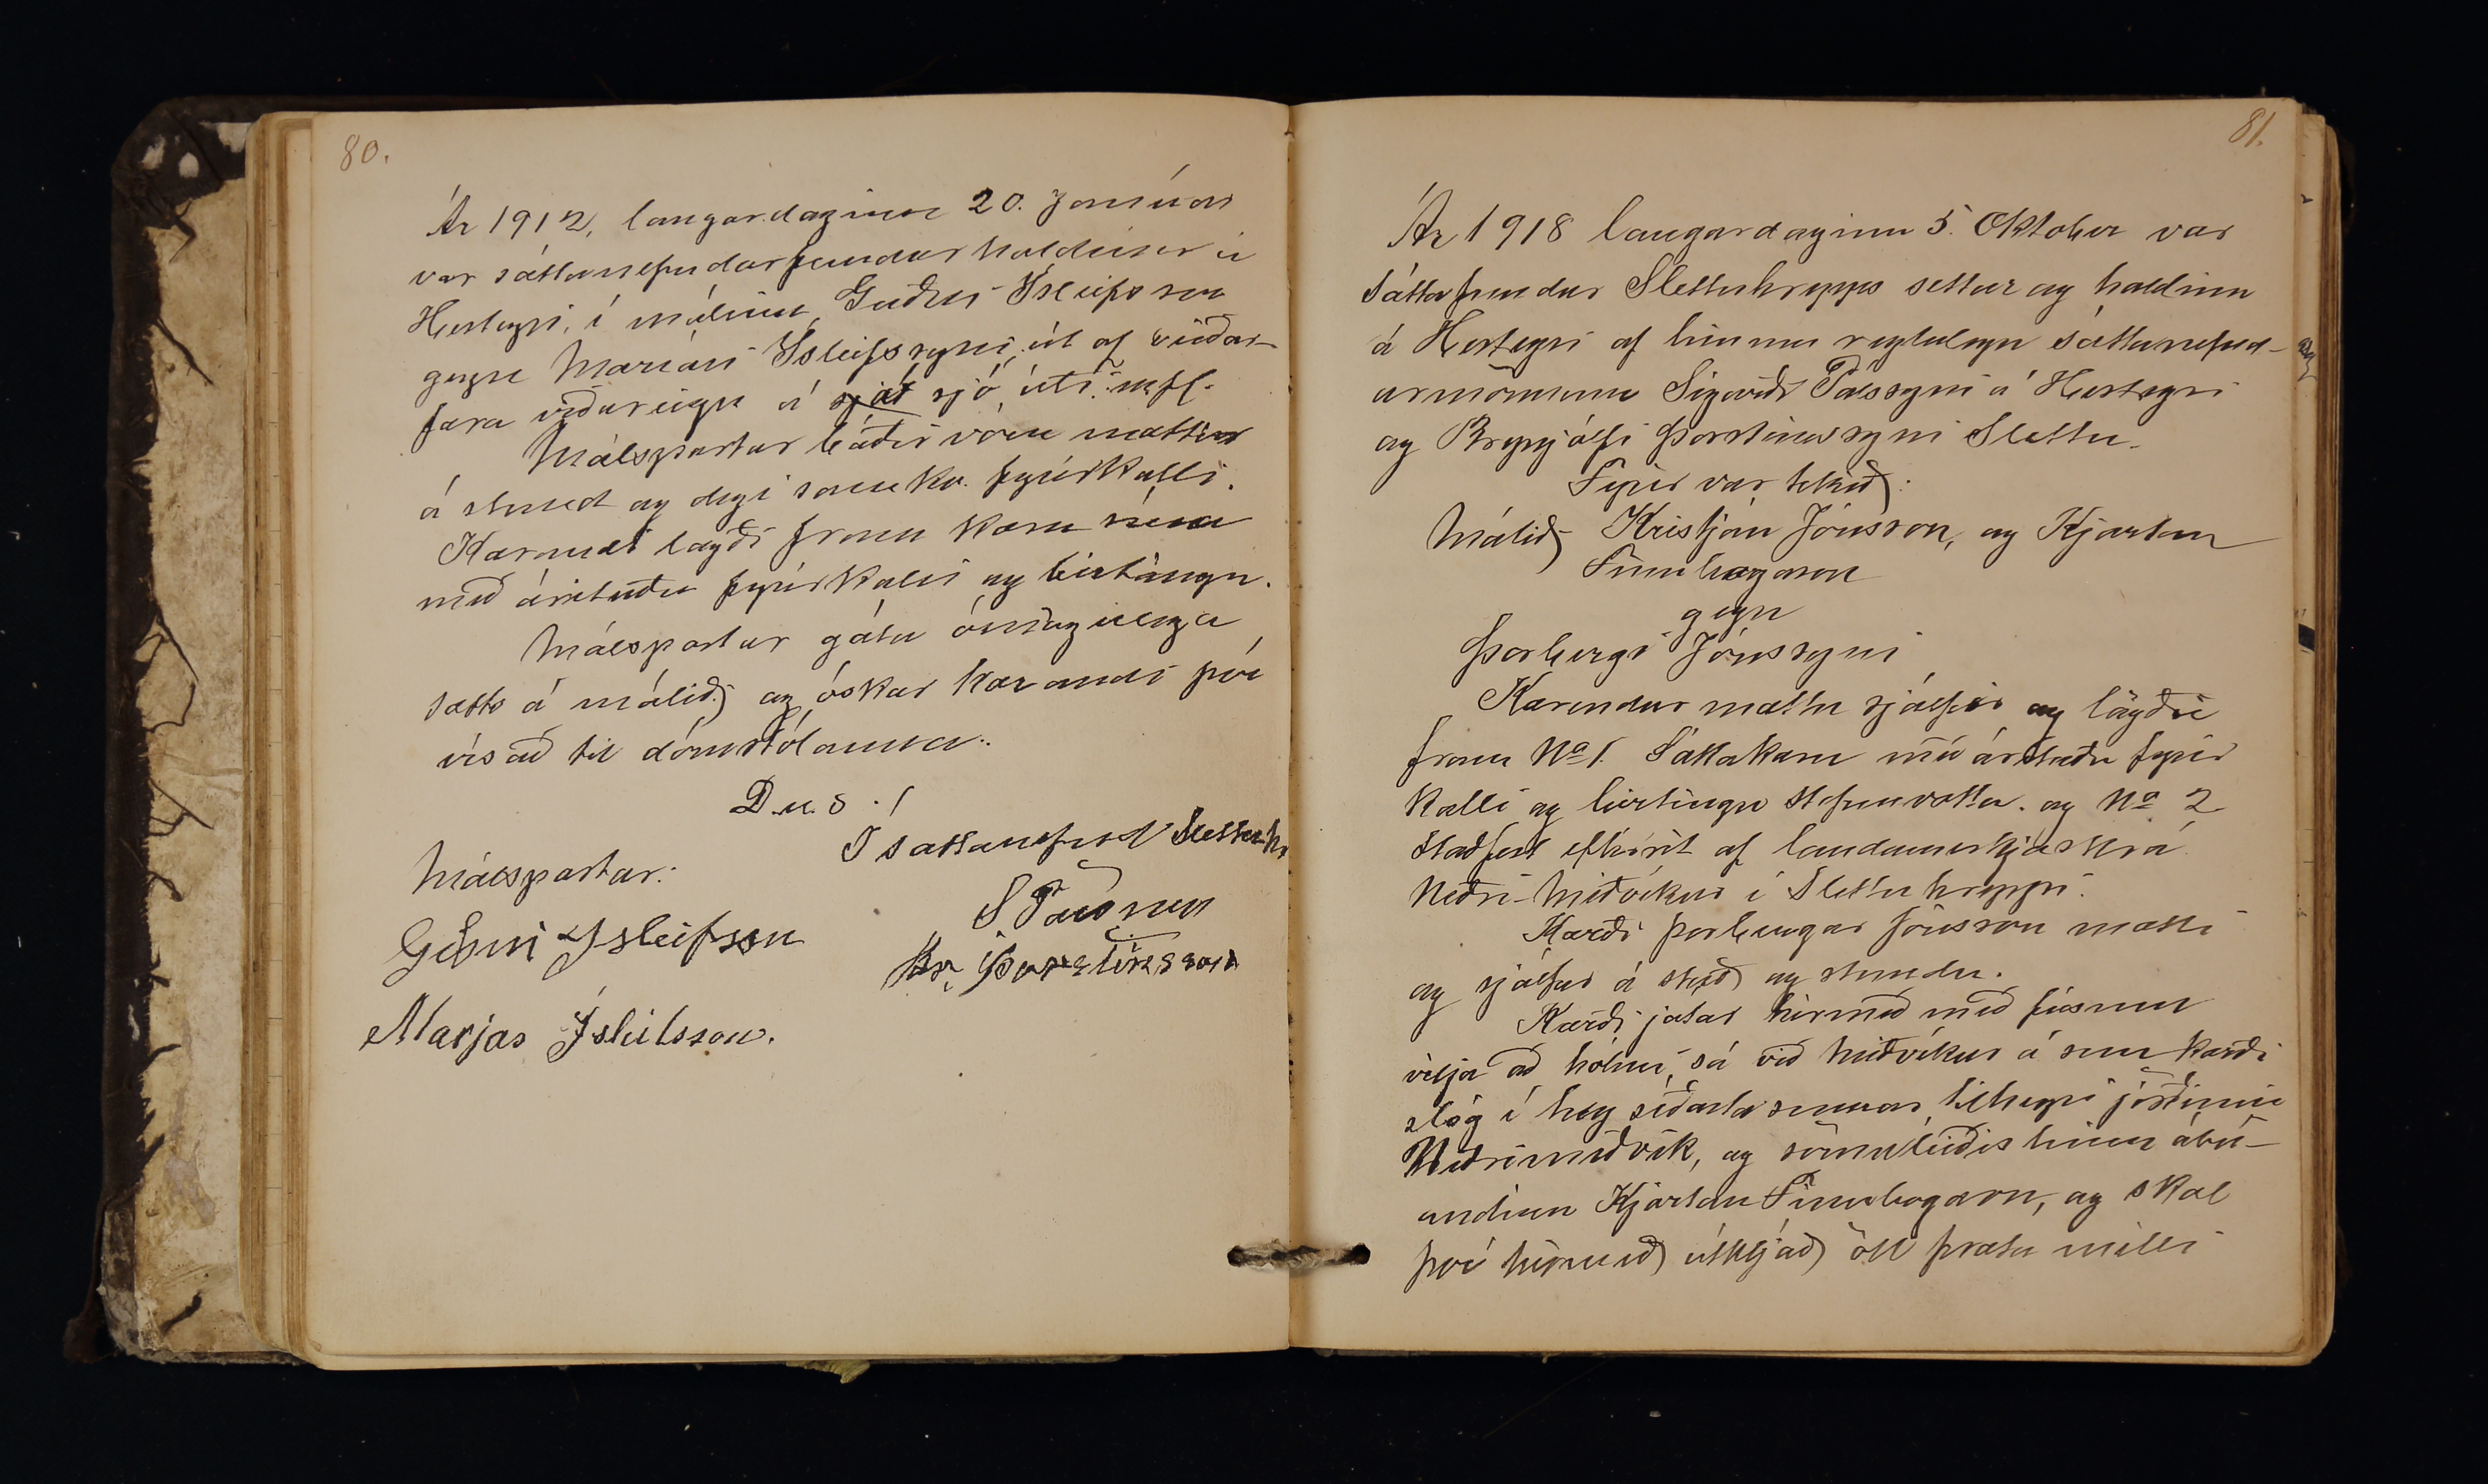 80.
Ár 1912, laugardaginn 20. Janúar
var sáttanefndarfundur haldinn á
Hesteyri, í málinu, Guðni Ísleifsson
gegn Maríasi Ísleifssyni, út af
fara viðureign á sját sjó úti. m.fl.
Málspartar báðir vóru mættir
á stund og degi samkv. fyrirkalli.
Kærandi lagði fram kæru sína
með árituðu fyrirkalli og birtingu.
Málspartar gátu ómögulega
sætts á málið, og óskar kærandi því
vísað til dómstólanna.
D.u.s.!
Í sáttanefnd Slettuhr
Málspartar:
S Pálsson
Guðni Ísleifsson
Br. Þorsteinsson
Marjas Ísleifsson.
81.
Ár 1918 laugardaginn 5. Oktober var
Sáttafundur Slettuhrepps settur og haldinn
á Hesteyri af hinum reglulegu sáttanefnd-
armönnum Sigurði Pálssyni á Hesteyri
og Brynjólfi Þorsteinssyni Slettu.
Fyrir var tekið:
Málið Kristján Jónsson, og Kjartan
Finnbogason
gegn
Þorbergi Jónssyni
Kærendur mættu sjálfir og lögðu
fram No 1. Sáttakæru með árituðu fyrir
kalli og birtingu stefnuvotta. og No 2
Staðfest eftirrit af landamerkjaskrá
Neðri-Miðvíkur í Slettuhreppi.
Kærði Þorbergur Jónsson mætti
og sjálfur á stað og stundu.
Kærði játar hérmeð með fúsum
vilja að hólmi, sá við Miðvíkur á sem kærði
slóg í hey síðasta sumar, tilheyri jörðinni
Neðrimiðvík, og sömuleiðis hinn ábú-
andinn Kjartan Finnbogason, og skal
því hérmeð útkljáð öll þræta milli